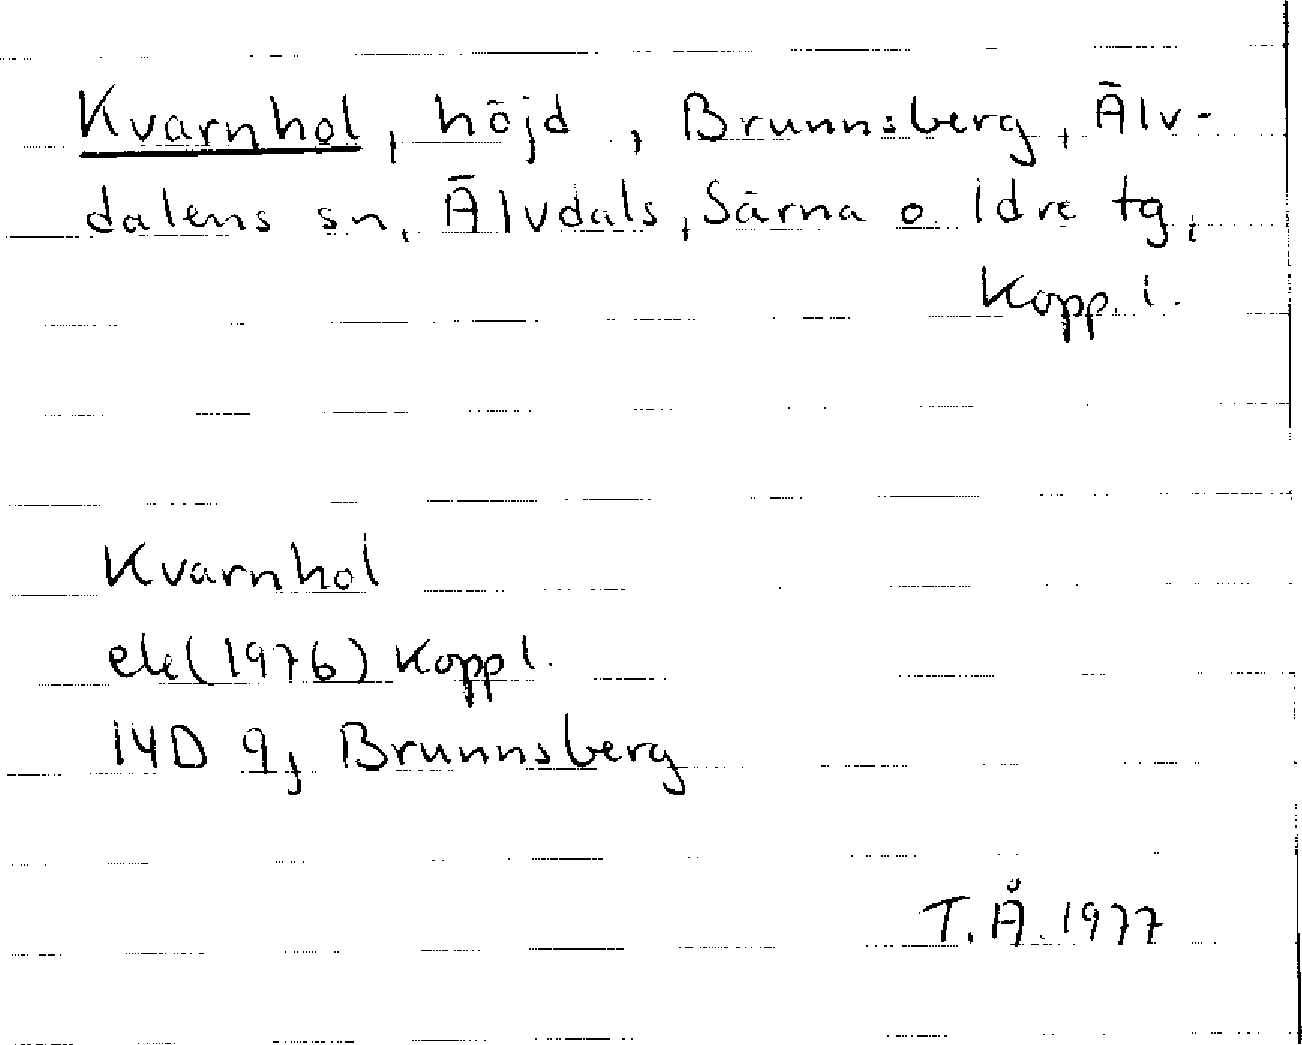 Kvarnhol, höjd, Brunnsberg, Älv-
dalens sn, Älvdals, Särna o. Idre tg,
Kopp. l.
Kvarnhol
ek (1976) Kopp l.
14D 9j Brunnsberg
T. Å. 1977